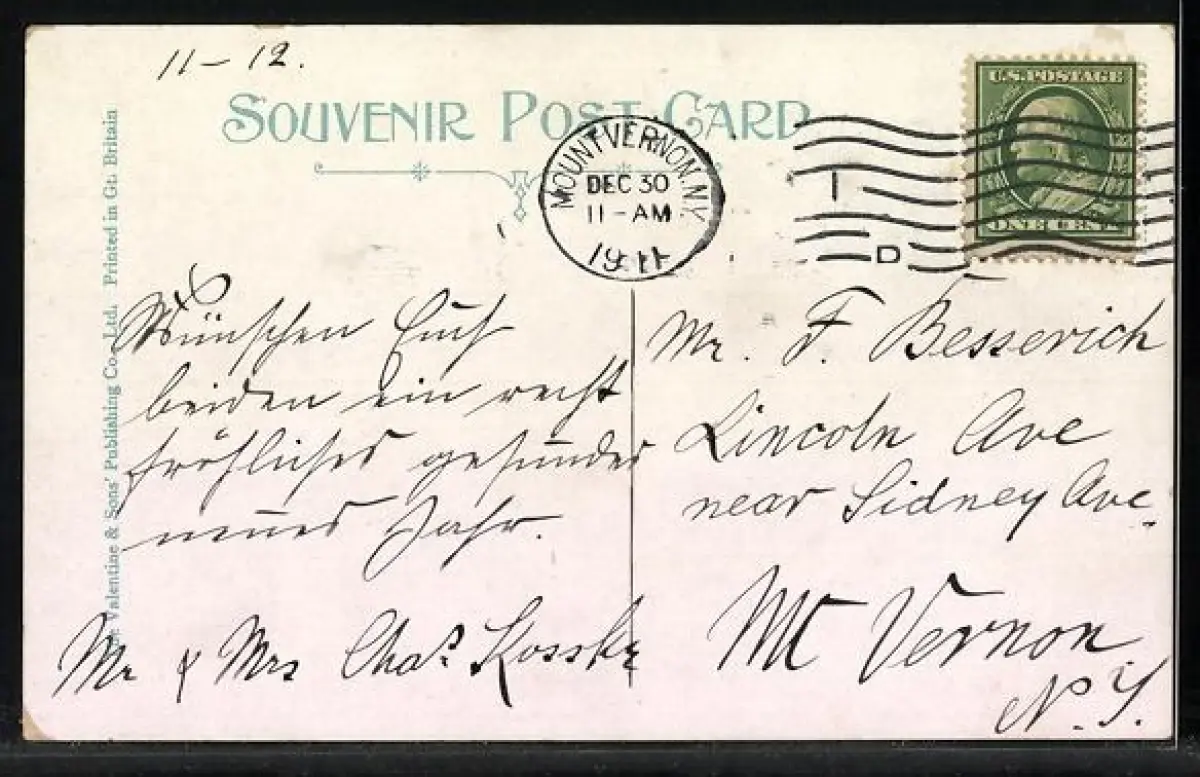 11-12.
SOUVENIR POST CARD
MOUNT VERNON. N.Y.
DEC 30
11-AM
1911
1
D
U.S. POSTAGE
ONE CENT
Valentine & Sons' Publishing Co., Ltd. Printed in Gt. Britain
Wünschen Euch
beiden ein recht
fröhliches gesundes
neues Jahr.
Mr & Mrs Chas. Kosske
Mr. F. Besserich
Lincoln Ave
near Sidney Ave.
Mt Vernon
N.Y.